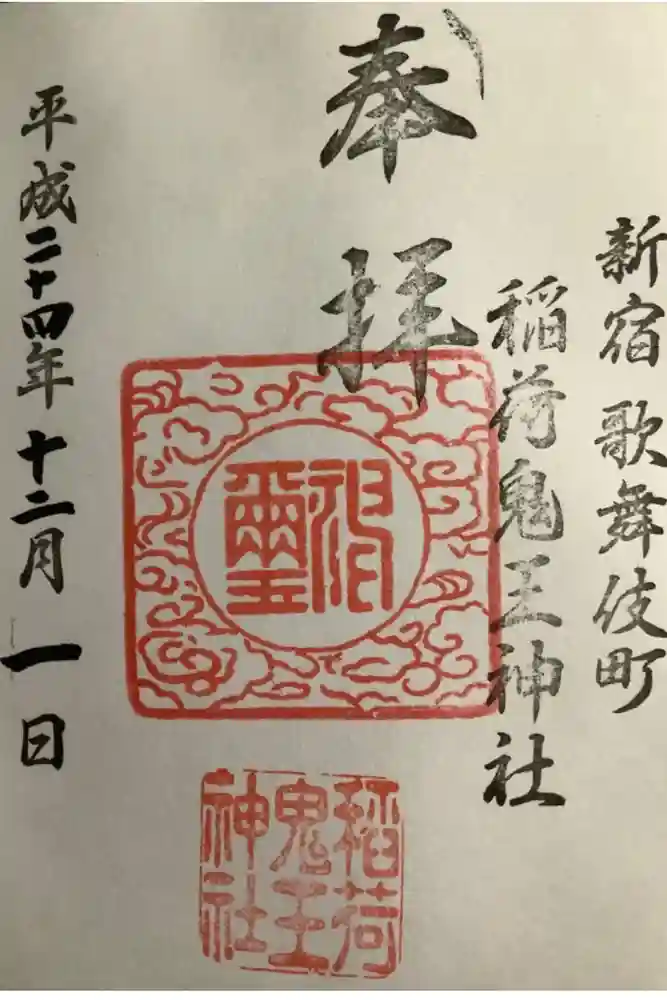 新宿歌舞伎町
稲荷鬼王神社
奉拝
神璽
稲荷
鬼王
神社
平成二十四年十二月一日